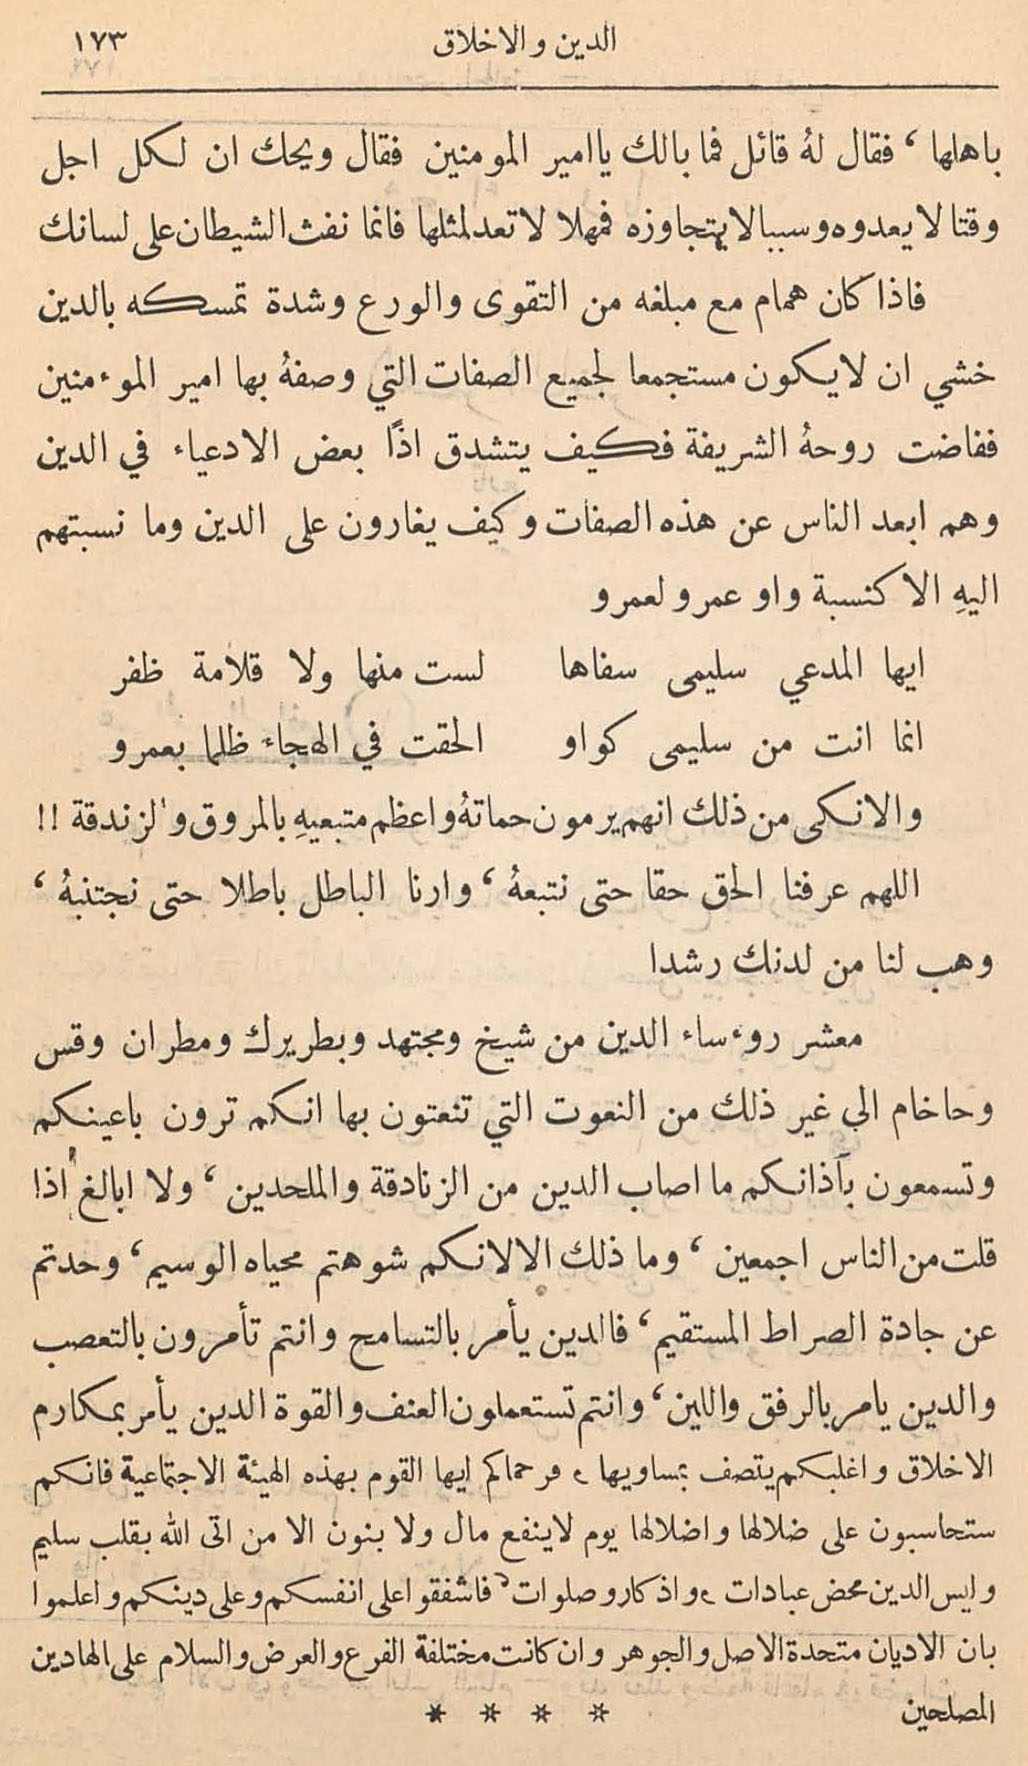 الدين والاخلاق ١٧٣
باهلها ، فقال لهُ قائل فما بالك يا امير المومنين فقال ويحك ان لكل اجل
وقتا لا يعدوه وسببا لا يتجاوزه فمهلا لا تعد لمثلها فانما نفث الشيطان على لسانك
فاذا كان همام مع مبلغه من التقوى والورع وشدة تمسكه بالدين
خشي ان لا يكون مستجمعا لجميع الصفات التي وصفهُ بها امير الموءمنين
ففاضت روحهُ الشريفة فكيف يتشدق اذًا بعض الادعياء في الدين
وهم ابعد الناس عن هذه الصفات وكيف يغارون على الدين وما نسبتهم
اليهِ الا كنسبة واو عمرو لعمرو
ايها المدعي سليمى سفاها لست منها ولا قلامة ظفر
انما انت من سليمى كواو الحقت في الهجاء ظلما بعمرو
والانكى من ذلك انهم يرمون حماتهُ واعظم متبعيهِ بالمروق والزندقة !!
اللهم عرفنا الحق حقا حتى نتبعهُ ، وارنا الباطل باطلا حتى نجتنبهُ ،
وهب لنا من لدنك رشدا
معشر روءساء الدين من شيخ ومجتهد وبطريرك ومطران وقس
وحاخام الى غير ذلك من النعوت التي تنعتون بها انكم ترون باعينكم
وتسمعون بآذانكم ما اصاب الدين من الزنادقة والملحدين ، ولا ابالغ اذا
قلت من الناس اجمعين ، وما ذلك الا لانكم شوهتم محياه الوسيم ، وحدتم
عن جادة الصراط المستقيم ، فالدين يأمر بالتسامح وانتم تأمرون بالتعصب
والدين يامر بالرفق واللين ، وانتم تستعملون العنف والقوة الدين يأمر بمكارم
الاخلاق واغلبكم يتصف بمساويها ، فرحماكم ايها القوم بهذه الهيئة الاجتماعية فانكم
ستحاسبون على ضلالها واضلالها يوم لا ينفع مال ولا بنون الا من اتى الله بقلب سليم
وليس الدين محض عبادات ، واذكار وصلوات ، فاشفقوا على انفسكم وعلى دينكم واعلموا
بان الاديان متحدة الاصل والجوهر وان كانت مختلفة الفرع والعرض والسلام على الهادين
المصلحين * * * *